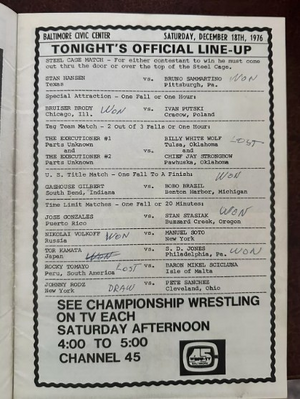 BALTIMORE CIVIC CENTER SATURDAY, DECEMBER 18TH, 1976
TONIGHT'S OFFICIAL LINE-UP
STEEL CAGE MATCH - For either contestant to win he must come
out thru the door or over the top of the Steel Cage.
STAN HANSEN vs. BRUNO SAMMARTINO WON
Texas Pittsburgh, Pa.
Special Attraction - One Fall or One Hour:
BRUISER BRODY WON vs. IVAN PUTSKI
Chicago, Ill. Cracow, Poland
Tag Team Match - 2 Out Of 3 Falls or One Hour:
THE EXECUTIONER #1 BILLY WHITE WOLF LOST
Parts Unknown vs. Tulsa, Oklahoma
and and
THE EXECUTIONER #2 vs. CHIEF JAY STRONGBOW
Parts Unknown Pawhuska, Oklahoma
U. S. Title Match - One Fall To A Finish: WON
GASHOUSE GILBERT vs. BOBO BRAZIL
South Bend, Indiana Benton Harbor, Michigan
Time Limit Matches - One Fall or 20 Minutes:
JOSE GONZALES vs. STAN STASIAK WON
Puerto Rico Buzzard Creek, Oregon
NIKOLAI VOLKOFF WON vs. MANUEL SOTO
Russia New York
TOR KAMATA vs. S. D. JONES WON
Japan WON Philadelphia, Pa.
ROCKY TOMAYO LOST vs. BARON MIKEL SCICLUNA
Peru, South America Isle of Malta
JOHNNY RODZ DRAW vs. PETE SANCHEZ
New York Cleveland, Ohio
SEE CHAMPIONSHIP WRESTLING
ON TV EACH
SATURDAY AFTERNOON
4:00 TO 5:00
CHANNEL 45
45